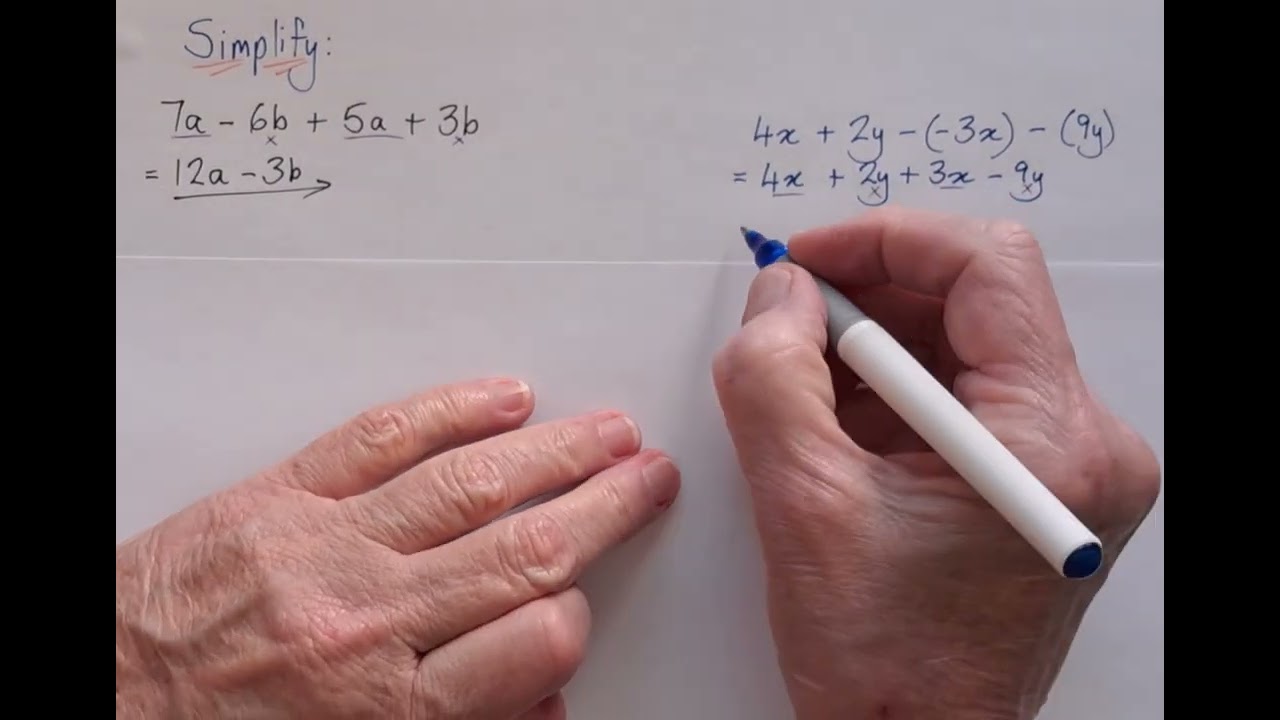 Simplify:
7a - 6b + 5a + 3b
= 12a - 3b
4x + 2y - (-3x) - (9y)
= 4x + 2y + 3x - 9y